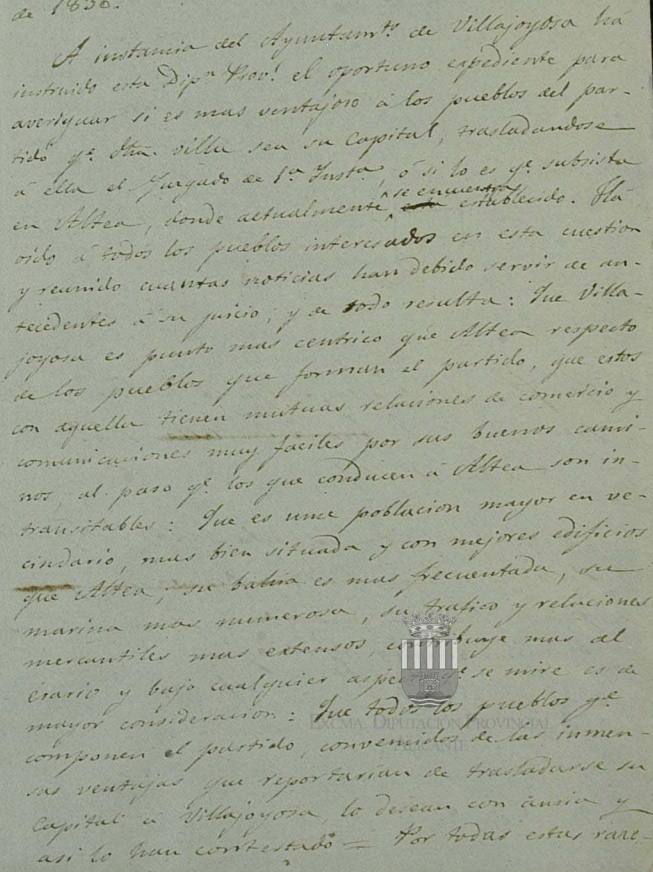 de 1836.
A instancia del Ayuntamto. de Villajoyosa há
instruido esta Dipn. Provl. el oportuno espediente para
averiguar si es mas ventajoso á los pueblos del par-
tido qe. dha. villa sea su Capital, trasladandose
á ella el Juzgado de 1a. Insta., ó si lo es qe. subsista
en Altea, donde actualmente se encuentra establecido. Há
oido á todos los pueblos interesados en esta cuestion
y reunido cuantas noticias han debido servir de an-
tecedentes á su juicio; y de todo resulta: Que Villa-
joyosa es punto mas centrico que Altea respecto
de los pueblos que forman el partido, que estos
con aquella tienen mutuas relaciones de comercio y
comunicaciones muy faciles por sus buenos cami-
nos, al paso qe. los que conducen á Altea son in-
transitables: Que es una poblacion mayor en ve-
cindario, mas bien situada y con mejores edificios
que Altea; su bahia es mas frecuentada, su
marina mas numerosa, su trafico y relaciones
mercantiles mas extensos, contribuye mas al
erario y bajo cualquier aspecto qe. se mire es de
mayor consideracion: Que todos los pueblos qe.
componen el partido, convenidos de las inmen-
sas ventajas que reportarian de trasladarse su
Capital á Villajoyosa, lo desean con ánsia y
asi lo han contestado = Por todas estas raze-
EXCMA. DIPUTACIÓN PROVINCIAL
ALICANTE